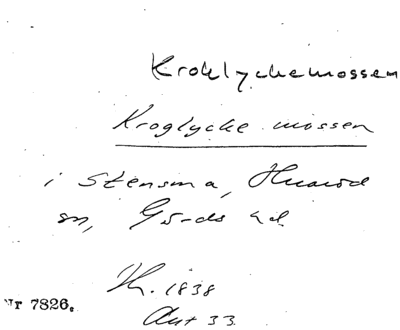 Kroklyckemossen
Kroglycke mossen
i Stensma, Huaröd
sn, Gärds hd
Kr. 1838
Akt 33
Nr 7826.